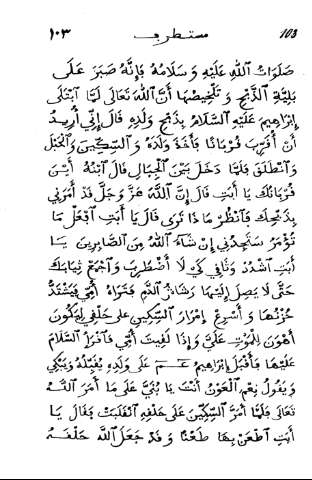 ١٠٣ مستطرف 103
صَلَوَاتُ اللّٰهِ عَلَيْهِ وَسَلَامُهُ فَإِنَّهُ صَبَرَ عَلَى
بَلِيَّةِ الذَّبْحِ وَتَلْخِيصُهَا أَنَّ اللّٰهَ تَعَالَى لَمَّا ابْتَلَى
إِبْرَاهِيمَ عَلَيْهِ السَّلَامُ بِذَبْحِ وَلَدِهِ قَالَ إِنِّي أُرِيدُ
أَنْ أُقَرِّبَ قُرْبَانًا فَأَخَذَ وَلَدَهُ وَالسِّكِّينَ وَالْحَبْلَ
وَانْطَلَقَ فَلَمَّا دَخَلَ بَيْنَ الْجِبَالِ قَالَ ابْنُهُ أَيْنَ
قُرْبَانُكَ يَا أَبَتِ قَالَ إِنَّ اللّٰهَ عَزَّ وَجَلَّ قَدْ أَمَرَنِي
بِذَبْحِكَ فَانْظُرْ مَاذَا تَرَى قَالَ يَا أَبَتِ افْعَلْ مَا
تُؤْمَرُ سَتَجِدُنِي إِنْ شَاءَ اللّٰهُ مِنَ الصَّابِرِينَ يَا
أَبَتِ اشْدُدْ وَثَاقِي كَيْ لَا أَضْطَرِبَ وَاجْمَعْ ثِيَابَكَ
حَتَّى لَا يَصِلَ إِلَيْهَا رَشَاشُ الدَّمِ فَتَرَاهُ أُمِّي فَيَشْتَدُّ
حُزْنُهَا وَأَسْرِعْ إِمْرَارَ السِّكِّينِ عَلَى حَلْقِي لِيَكُونَ
أَهْوَنَ لِلْمَوْتِ عَلَيَّ وَإِذَا لَقِيتَ أُمِّي فَاقْرَإِ السَّلَامَ
عَلَيْهَا فَأَقْبَلَ إِبْرَاهِيمُ عَلَى وَلَدِهِ يُقَبِّلُهُ وَيَبْكِي
وَيَقُولُ نِعْمَ الْعَوْنُ أَنْتَ يَا بُنَيَّ عَلَى مَا أَمَرَ اللّٰهُ
تَعَالَى فَلَمَّا أَمَرَّ السِّكِّينَ عَلَى حَلْقِهِ انْقَلَبَتْ فَقَالَ يَا
أَبَتِ اطْعَنْ بِهَا طَعْنًا وَقَدْ جَعَلَ اللّٰهُ حَلْقَهُ